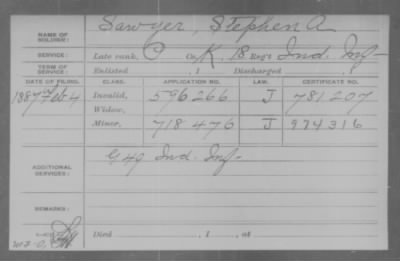 NAME OF SOLDIER: Sawyer, Stephen A
SERVICE: Late rank, P Co. K, 18 Reg't Ind. Inf
TERM OF SERVICE: Enlisted , 1 Discharged , 1
DATE OF FILING. CLASS. APPLICATION NO. LAW. CERTIFICATE NO.
1887 Feb 4 Invalid, 596266 J 781207
Widow,
Minor, 718476 J 974316
ADDITIONAL SERVICES: G 49 Ind. Inf
REMARKS:
Died , 1 , at